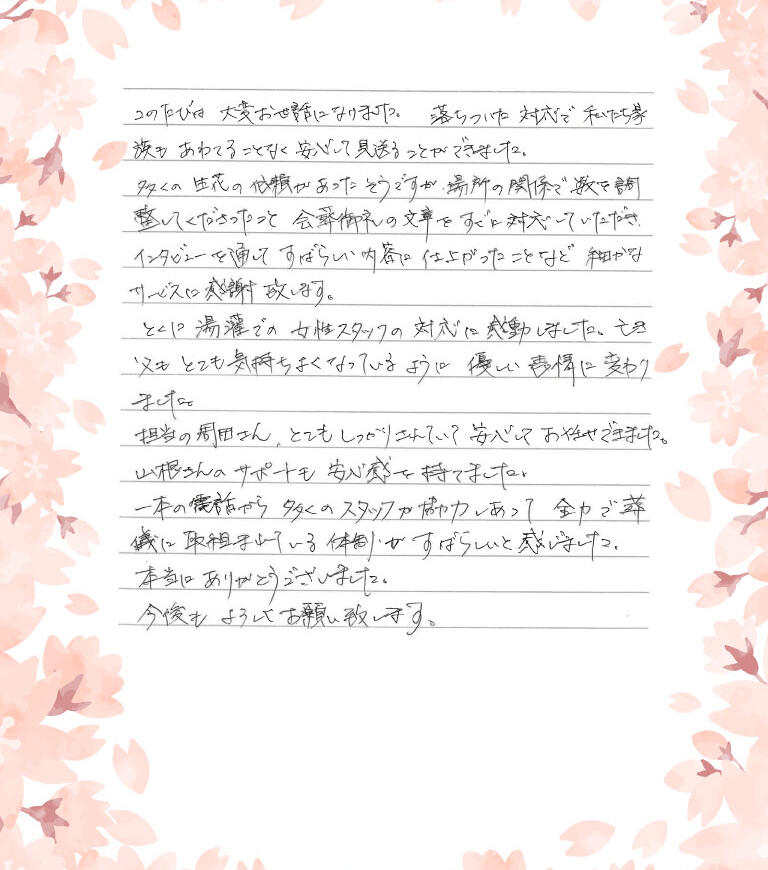 このたびは 大変お世話になりました。 落ちついた 対応で 私たち家
族も あわてることなく 安心して見送ることができました。
多くの 生花の 依頼があったそうですが、場所の関係で 数を調
整してくださったこと 会葬御礼の文章を すぐに対応していただき、
インタビューを通して すばらしい内容に 仕上がったことなど 細かな
サービスに感謝致します。
とくに 湯灌での 女性スタッフの 対応に感動しました。亡き
父も とても気持ちよくなっているように 優しい表情に変わり
ました。
担当の岡田さん、とてもしっかりされていて 安心して お任せできました。
山根さんの サポートも 安心感を 持てました。
一本の電話から 多くのスタッフが協力しあって 全力で 葬
儀に 取組まれている 体制が すばらしいと感じました。
本当に ありがとうございました。
今後も よろしくお願い致します。